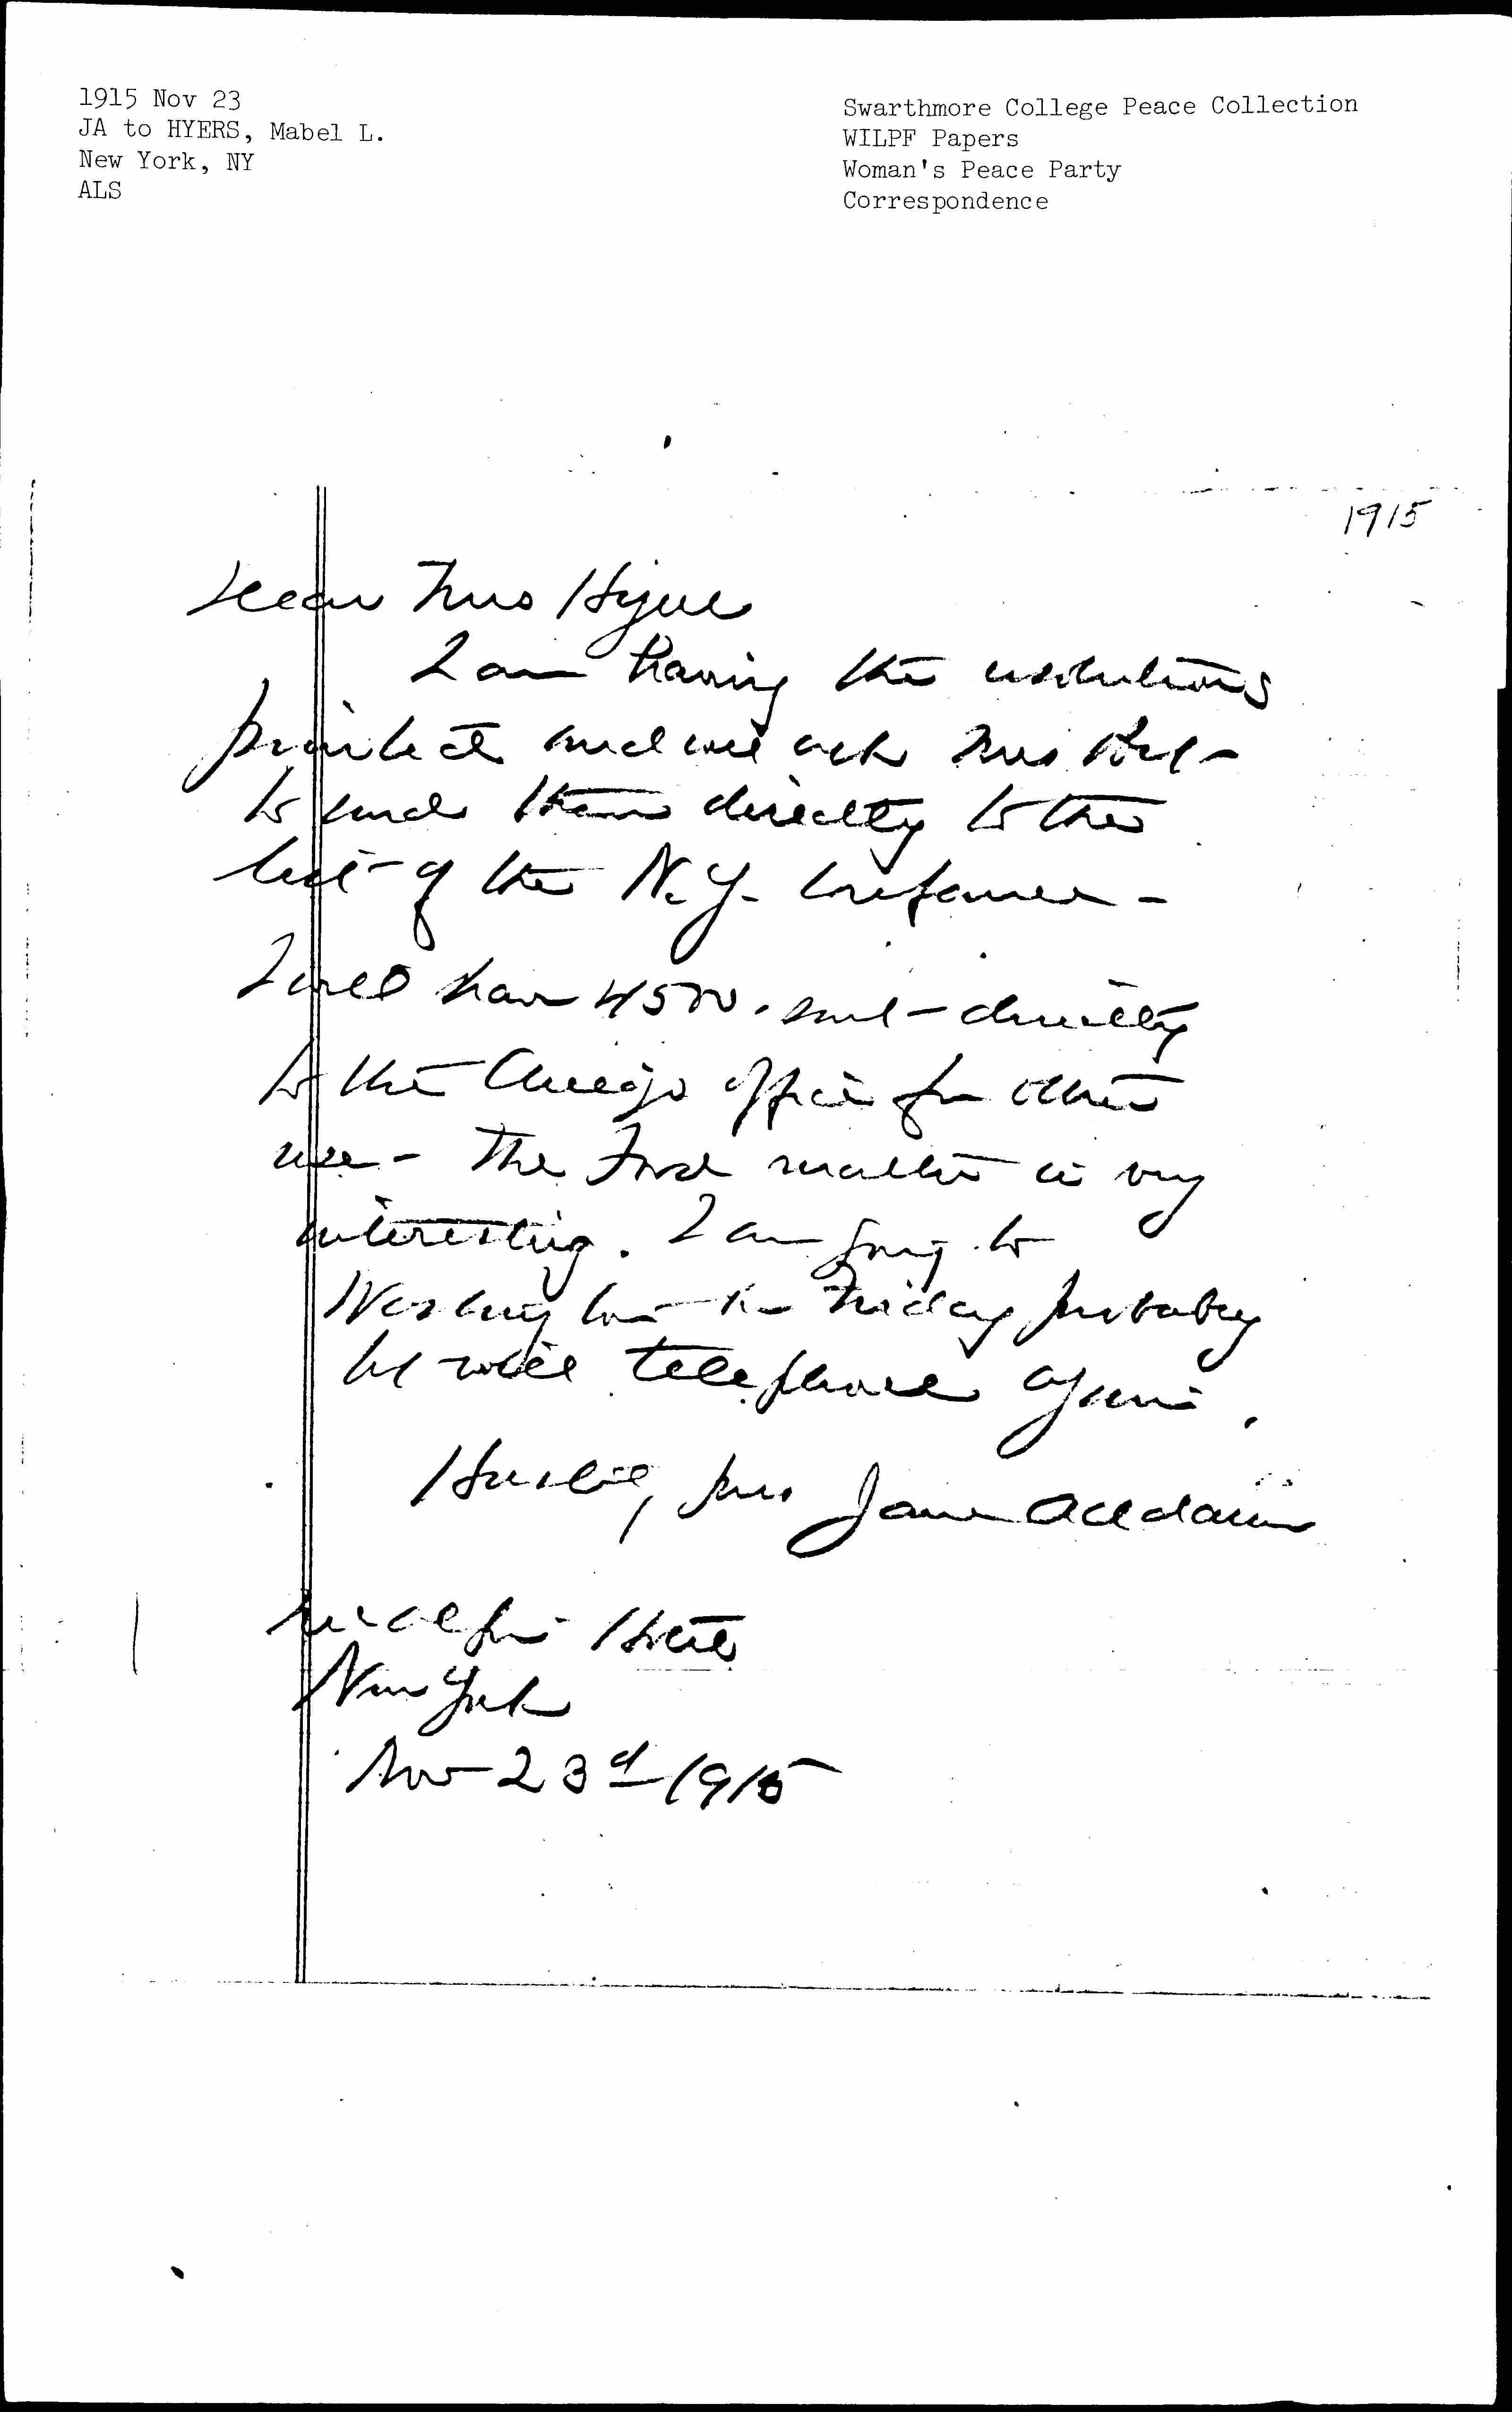 1915 Nov 23
JA to HYERS, Mabel L.
New York, NY
ALS
Swarthmore College Peace Collection
WILPF Papers
Woman's Peace Party
Correspondence
1915
Dear Miss Hyers
I am having the resolutions
printed and will ask Miss
to send them directly to the
list of the N.Y. conference -
I will have 4500. sent directly
to the Chicago office for other
use - The Ford matter is very
interesting. I am going to
Washington on Friday probably
but will telephone again.
Hastily, yrs Jane Addams
Hotel
New York
Nov 23d 1915